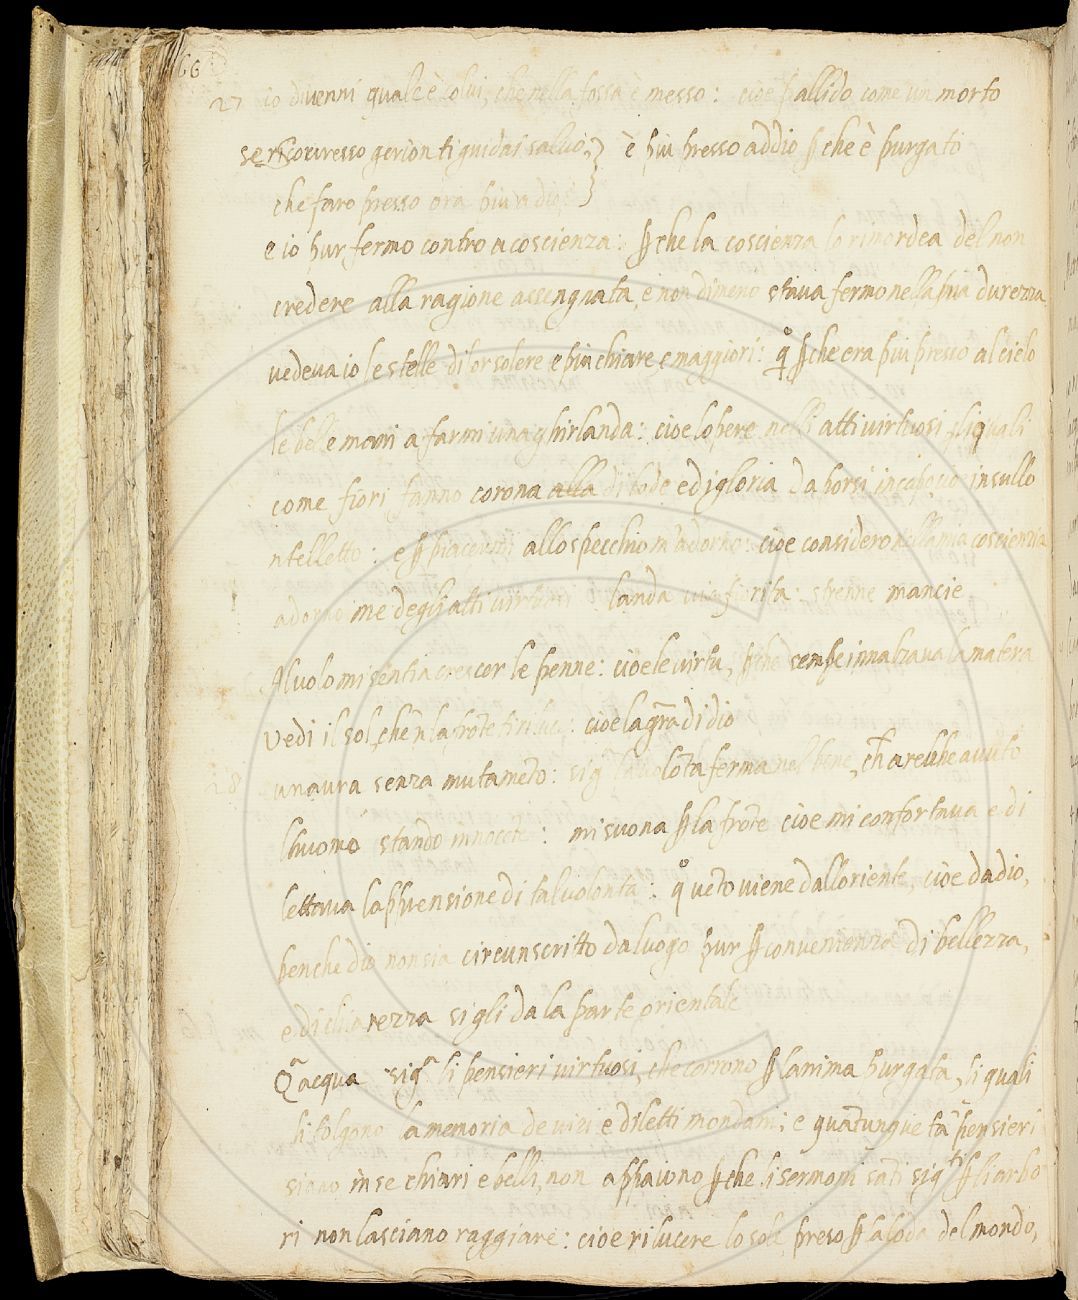 66
27 io divenni quale è colui, che nella fossa è messo: cioè pallido come un morto
se risouresso gerion ti guidai salvo, } è più presso addio ꝑche è purgato
che faro presso ora più a dio }
e io pur fermo contro a coscienza: ꝑche la coscienza lo rimordea del non
credere alla ragione assengnata, e non dimeno stava fermo nella sua durezza
vedeva io le stelle di lor solere e più chiare e maggiori: qº ꝑche era più presso al cielo
le belle mani a farmi una ghirlanda: cioè lopere negli atti virtuosi, li quali
come fiori fanno corona alla di lode e di gloria da porsi in capo, cioè in sullo
ntelletto: e ꝑ piacermi allo specchio m'adorno: cioè considero nella mia coscienzia
adorno me degli atti virtuosi landa via fiorita: strenne mancie
Al volo mi sentia crescer le penne: cioè le virtu, ꝑche sempre innalzava la matera
vedi il sol, che n la frōte ti riluce: cioè la grā di dio
28 unaura senza mutamēto: sigª la volōta ferma nel bene, ch̄ arebbe avuto
lhuomo stando innocēte: mi suona ꝑ la frōte cioè mi confortava e di
lettava la ꝑvensione di tal volonta: qº vēto viene dall oriente, cioè da dio,
benche dio non sia circunscritto da luogo pur ꝑ convenienza di bellezza,
e di chiarezza si gli da la parte orientale
Qª acqua sigª li pensieri virtuosi, che corrono ꝑ lanima purgata, li quali
li tolgono la memoria de vizi e diletti mondani; e quātunque tā pensieri
siano in se chiari e belli, non appaiono ꝑche li sermoni sāti sigti ꝑ li arbo
ri non lasciano raggiare: cioè rilucere lo sole preso ꝑ la loda del mondo,